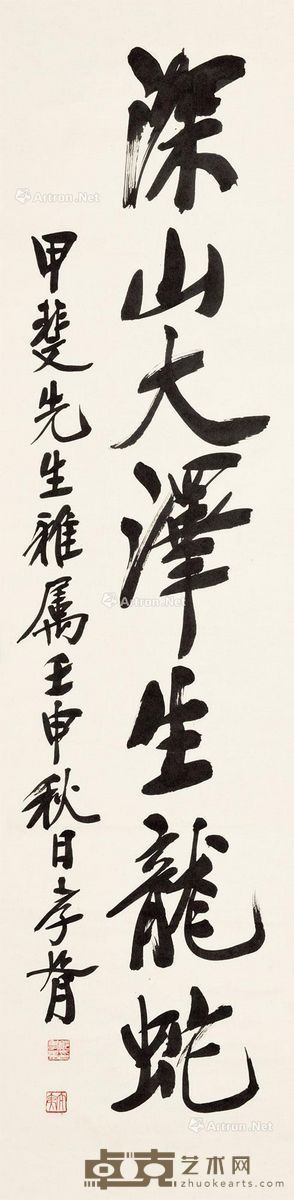 深山大澤生龍蛇
甲斐先生雅属壬申秋日孝胥
Artron.Net
Artron.Net
Artron.Net
卓克艺术网
www.zhuokearts.com